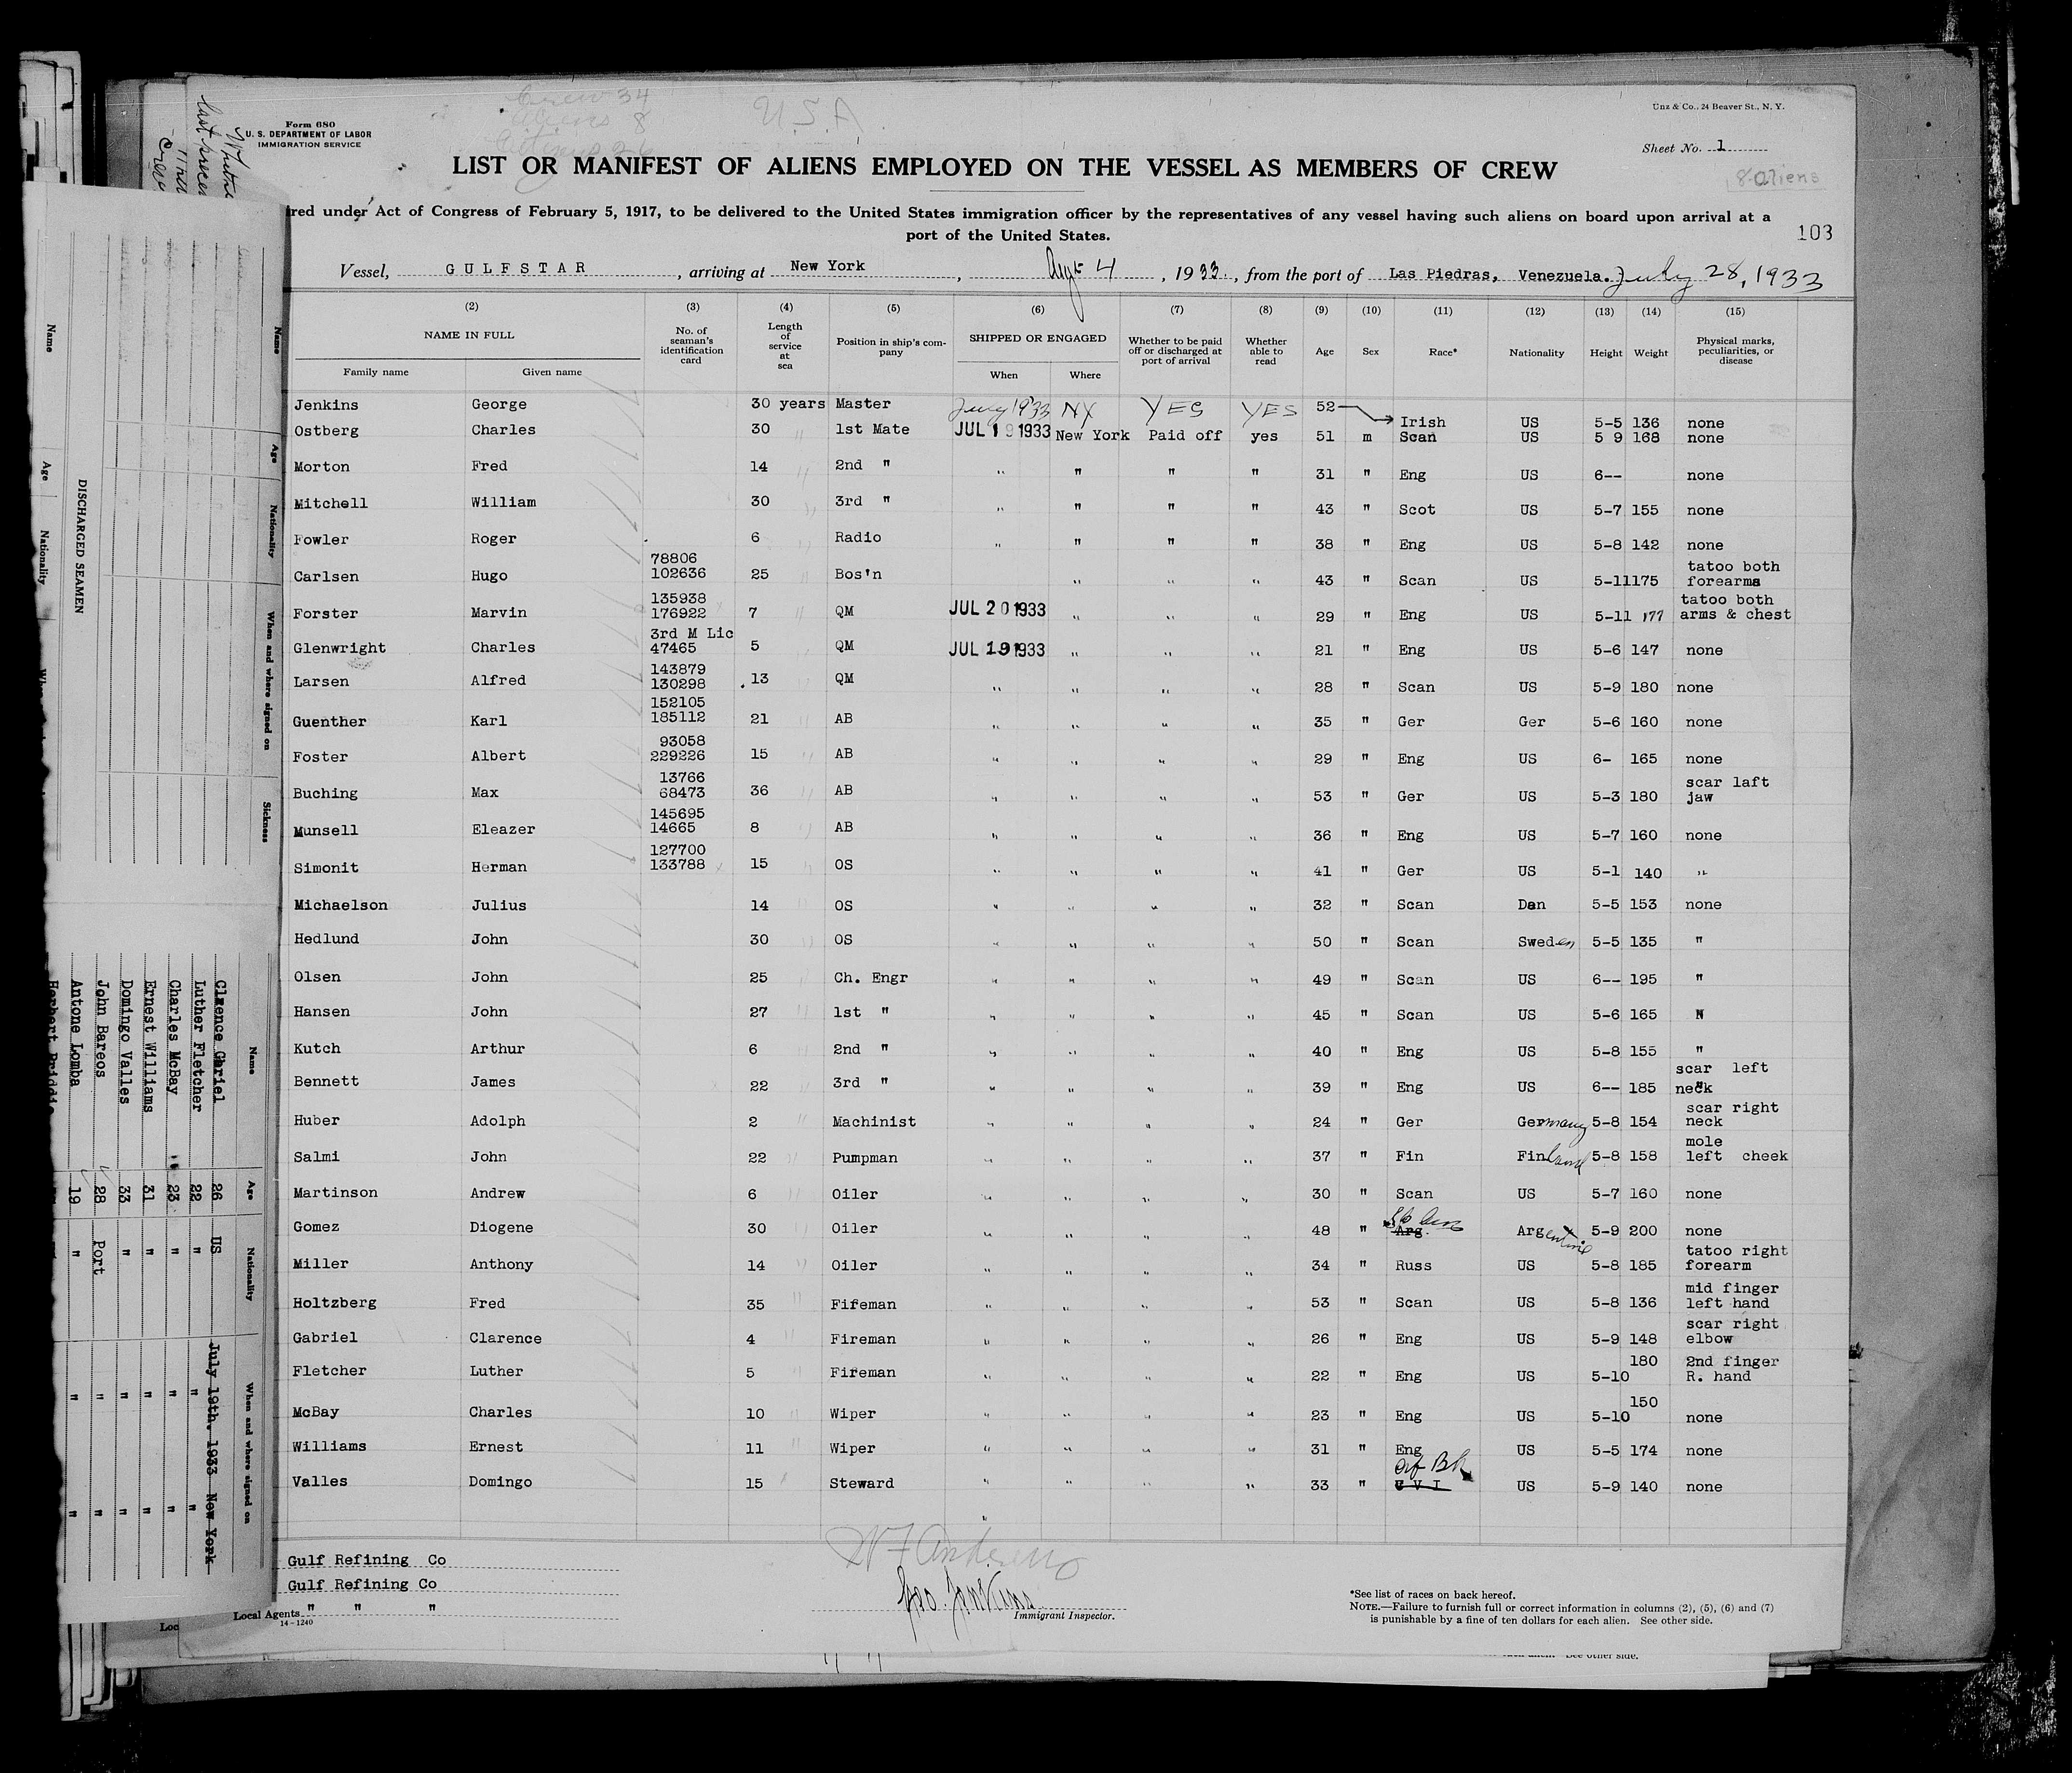 Crew 34
Aliens 8
Citizens 26
U.S.A.
Unz & Co., 24 Beaver St., N. Y.
Form 680
U. S. DEPARTMENT OF LABOR
IMMIGRATION SERVICE
Sheet No. 1
LIST OR MANIFEST OF ALIENS EMPLOYED ON THE VESSEL AS MEMBERS OF CREW
8 aliens
red under Act of Congress of February 5, 1917, to be delivered to the United States immigration officer by the representatives of any vessel having such aliens on board upon arrival at a
port of the United States.
103
Vessel, GULFSTAR, arriving at New York, Aug 4, 1933, from the port of Las Piedras, Venezuela. July 28, 1933
(2) (3) (4) (5) (6) (7) (8) (9) (10) (11) (12) (13) (14) (15)
NAME IN FULL No. of seaman's identification card Length of service at sea Position in ship's company SHIPPED OR ENGAGED Whether to be paid off or discharged at port of arrival Whether able to read Age Sex Race* Nationality Height Weight Physical marks, peculiarities, or disease
Family name Given name When Where
Jenkins George 30 years Master 1933 NY YES YES 52 Irish US 5-5 136 none
Ostberg Charles 30 " 1st Mate JUL 19 1933 New York Paid off yes 51 m Scan US 5 9 168 none
Morton Fred 14 " 2nd " " " " " 31 " Eng US 6-- none
Mitchell William 30 " 3rd " " " " " 43 " Scot US 5-7 155 none
Fowler Roger 6 " Radio " " " " 38 " Eng US 5-8 142 none
Carlsen Hugo 78806 102636 25 " Bos'n " " " 43 " Scan US 5-11 175 tatoo both forearms
Forster Marvin 135938 176922 7 " QM JUL 20 1933 " " " 29 " Eng US 5-11 177 tatoo both arms & chest
Glenwright Charles 3rd M Lic 47465 5 " QM JUL 19 1933 " " " 21 " Eng US 5-6 147 none
Larsen Alfred 143879 130298 13 QM " " " " 28 " Scan US 5-9 180 none
Guenther Karl 152105 185112 21 " AB " " " " 35 " Ger Ger 5-6 160 none
Foster Albert 93058 229226 15 " AB " " " " 29 " Eng US 6- 165 none
Buching Max 13766 68473 36 " AB " " " " 53 " Ger US 5-3 180 scar laft jaw
Munsell Eleazer 145695 14665 8 " AB " " " " 36 " Eng US 5-7 160 none
Simonit Herman 127700 133788 15 " OS " " " " 41 " Ger US 5-1 140 "
Michaelson Julius 14 " OS " " " " 32 " Scan Dan 5-5 153 none
Hedlund John 30 " OS " " " " 50 " Scan Sweden 5-5 135 "
Olsen John 25 " Ch. Engr " " " " 49 " Scan US 6-- 195 "
Hansen John 27 " 1st " " " " " 45 " Scan US 5-6 165 "
Kutch Arthur 6 " 2nd " " " " " 40 " Eng US 5-8 155 "
Bennett James 22 " 3rd " " " " " 39 " Eng US 6-- 185 scar left neck
Huber Adolph 2 " Machinist " " " " 24 " Ger Germany 5-8 154 scar right neck
Salmi John 22 " Pumpman " " " " 37 " Fin Finland 5-8 158 mole left cheek
Martinson Andrew 6 " Oiler " " " " 30 " Scan US 5-7 160 none
Gomez Diogene 30 " Oiler " " " " 48 " Arg. Argentine 5-9 200 none
Miller Anthony 14 " Oiler " " " " 34 " Russ US 5-8 185 tatoo right forearm
Holtzberg Fred 35 " Fireman " " " " 53 " Scan US 5-8 136 mid finger left hand
Gabriel Clarence 4 " Fireman " " " " 26 " Eng US 5-9 148 scar right elbow
Fletcher Luther 5 " Fireman " " " " 22 " Eng US 5-10 180 2nd finger R. hand
McBay Charles 10 " Wiper " " " " 23 " Eng US 5-10 150 none
Williams Ernest 11 " Wiper " " " " 31 " Eng US 5-5 174 none
Valles Domingo 15 " Steward " " " " 33 " Af Blk V I US 5-9 140 none
Gulf Refining Co
Gulf Refining Co
Local Agents " " "
14-1240
Geo. Jenkins
Immigrant Inspector.
*See list of races on back hereof.
NOTE.—Failure to furnish full or correct information in columns (2), (5), (6) and (7)
is punishable by a fine of ten dollars for each alien. See other side.
See other side.
Name Age Nationality When and where signed on Sickness
DISCHARGED SEAMEN
Name Age Nationality
Name Age Nationality When and where signed on
Clxence Gbriel 26 US July 19th. 1933 New York
Luther Fletcher 22 " " "
Charles McBay 23 " " "
Ernest Williams 31 " " "
Domingo Valles 33 " " "
John Bareos 28 Port " "
Antone Lomba 19 " " "